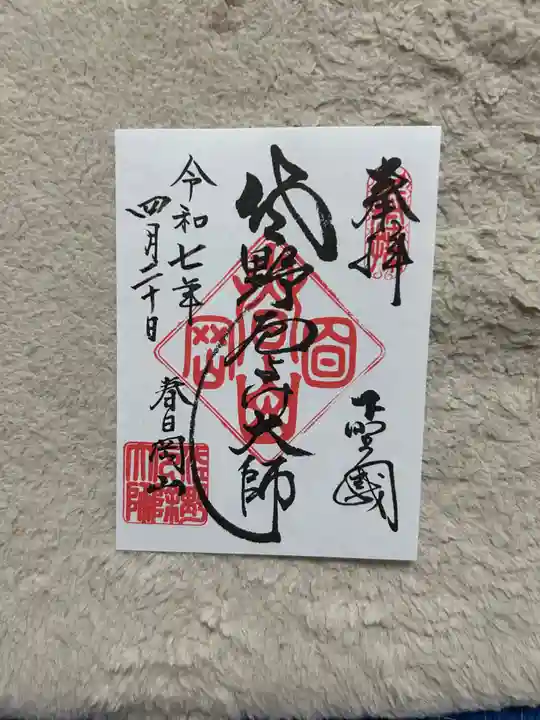 奉拝
下野國
佐野厄除大師
令和七年
四月二十日
春日岡山